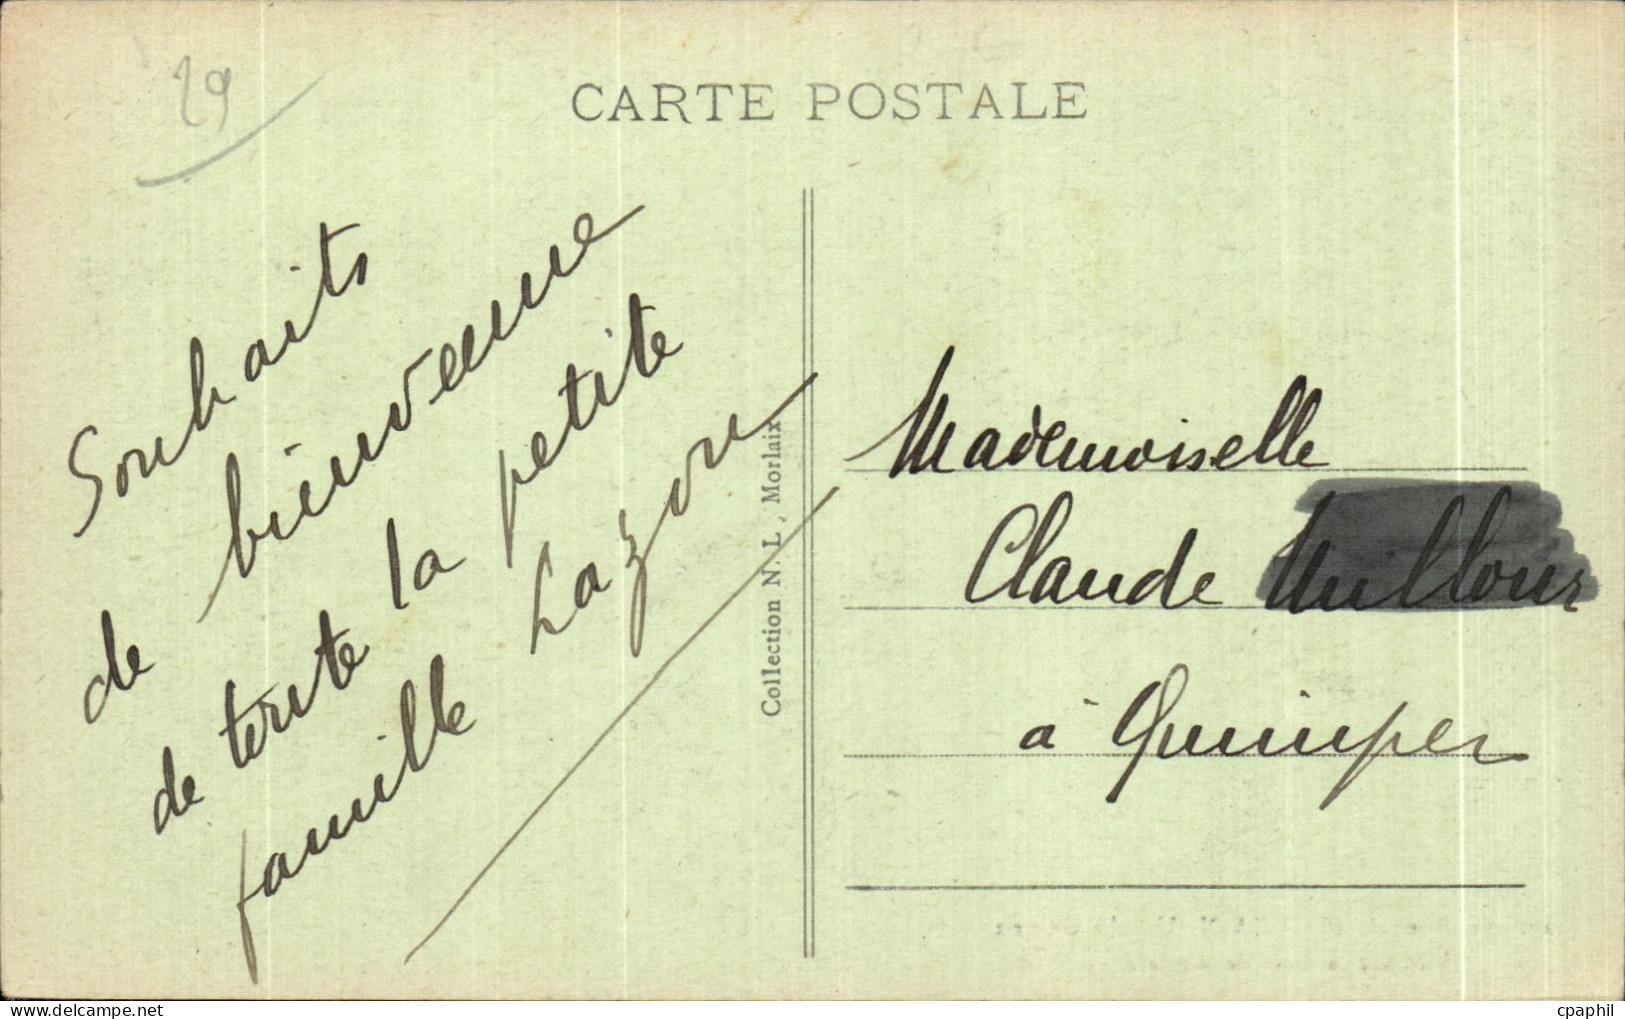 29
CARTE POSTALE
Souhaits
de bienvenue
de toute la petite
famille Lazou
Collection N. L., Morlaix
Mademoiselle
Claude Millour
à Quimper
delcampe.net
cpaphil